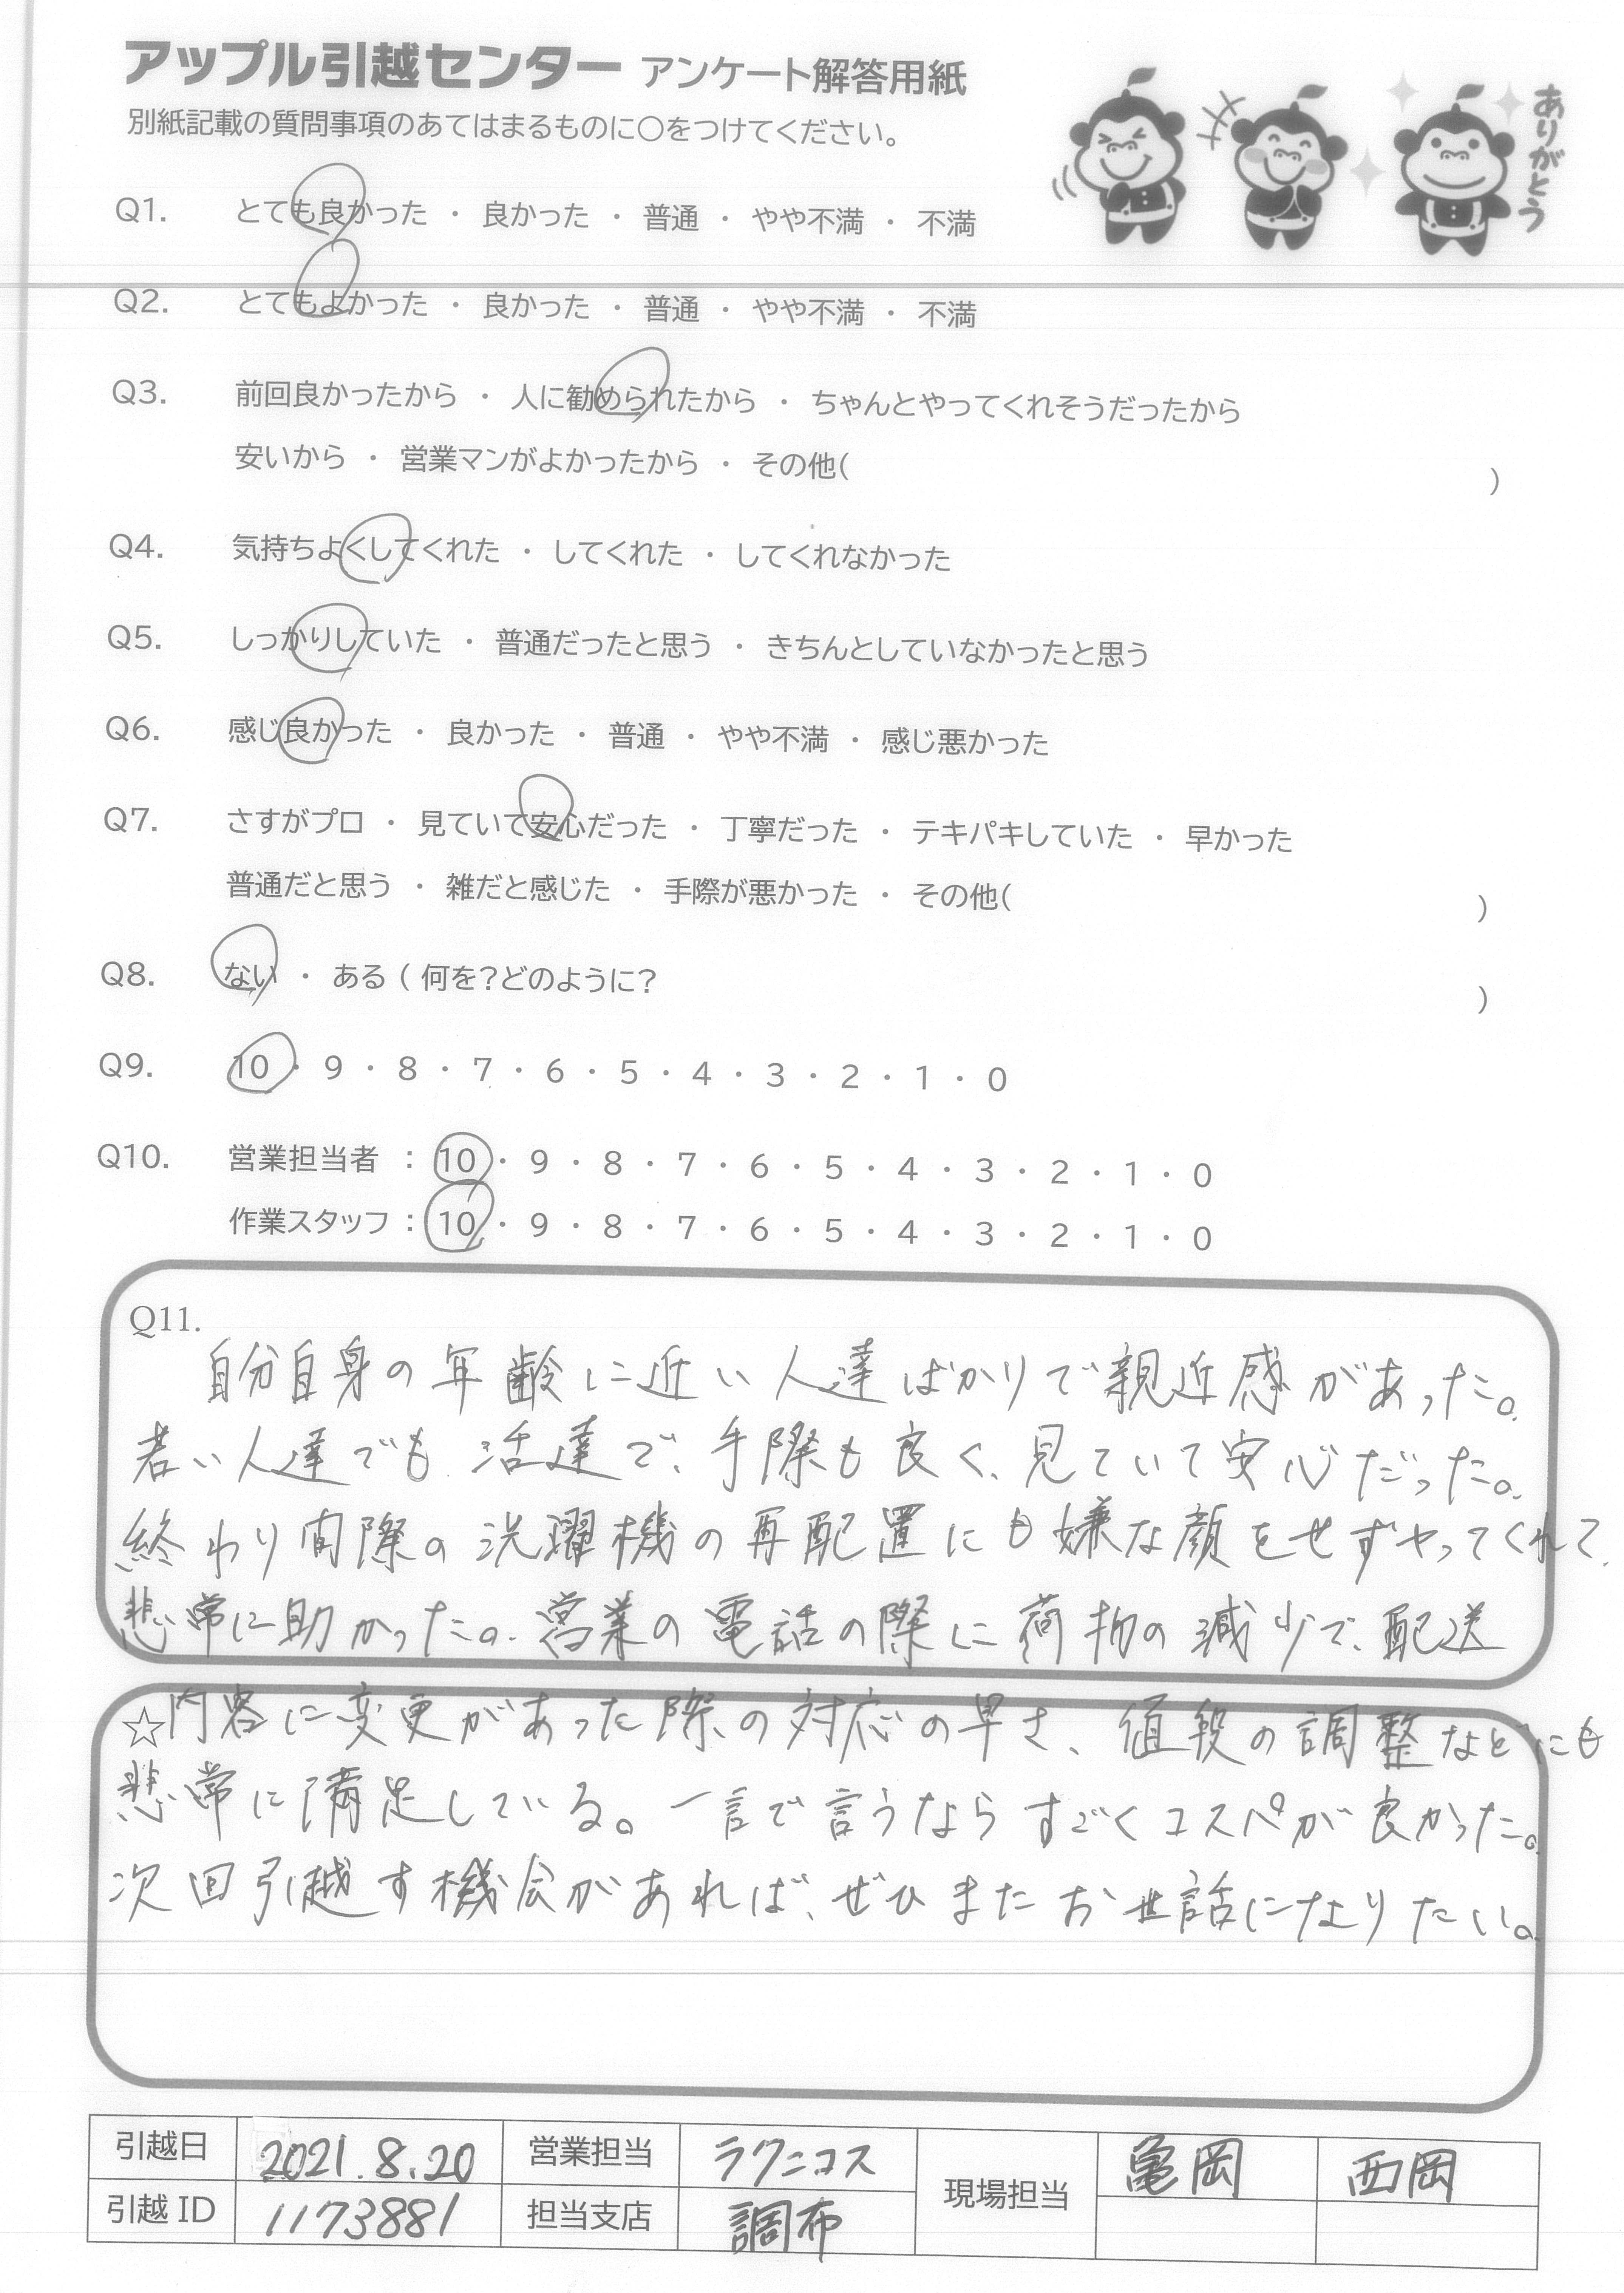 アップル引越センター アンケート解答用紙
別紙記載の質問事項のあてはまるものに○をつけてください。
ありがとう
Q1. とても良かった ・ 良かった ・ 普通 ・ やや不満 ・ 不満
Q2. とてもよかった ・ 良かった ・ 普通 ・ やや不満 ・ 不満
Q3. 前回良かったから ・ 人に勧められたから ・ ちゃんとやってくれそうだったから
安いから ・ 営業マンがよかったから ・ その他( )
Q4. 気持ちよくしてくれた ・ してくれた ・ してくれなかった
Q5. しっかりしていた ・ 普通だったと思う ・ きちんとしていなかったと思う
Q6. 感じ良かった ・ 良かった ・ 普通 ・ やや不満 ・ 感じ悪かった
Q7. さすがプロ ・ 見ていて安心だった ・ 丁寧だった ・ テキパキしていた ・ 早かった
普通だと思う ・ 雑だと感じた ・ 手際が悪かった ・ その他( )
Q8. ない ・ ある ( 何を?どのように? )
Q9. 10 ・ 9 ・ 8 ・ 7 ・ 6 ・ 5 ・ 4 ・ 3 ・ 2 ・ 1 ・ 0
Q10. 営業担当者 : 10 ・ 9 ・ 8 ・ 7 ・ 6 ・ 5 ・ 4 ・ 3 ・ 2 ・ 1 ・ 0
作業スタッフ : 10 ・ 9 ・ 8 ・ 7 ・ 6 ・ 5 ・ 4 ・ 3 ・ 2 ・ 1 ・ 0
Q11.
自分自身の年齢に近い人達ばかりで親近感があった。
若い人達でも活達で、手際も良く、見ていて安心だった。
終わり間際の洗濯機の再配置にも嫌な顔をせずやってくれて、
悲常に助かった。営業の電話の際に荷物の減少で、配送
☆内容に変更があった際の対応の早さ、値段の調整などにも
悲常に満足している。一言で言うならすごくコスペが良かった。
次回引越す機会があれば、ぜひまたお世話になりたい。
引越日 2021.8.20 営業担当 ラクニコス 現場担当 亀岡 西岡
引越 ID 1173881 担当支店 調布